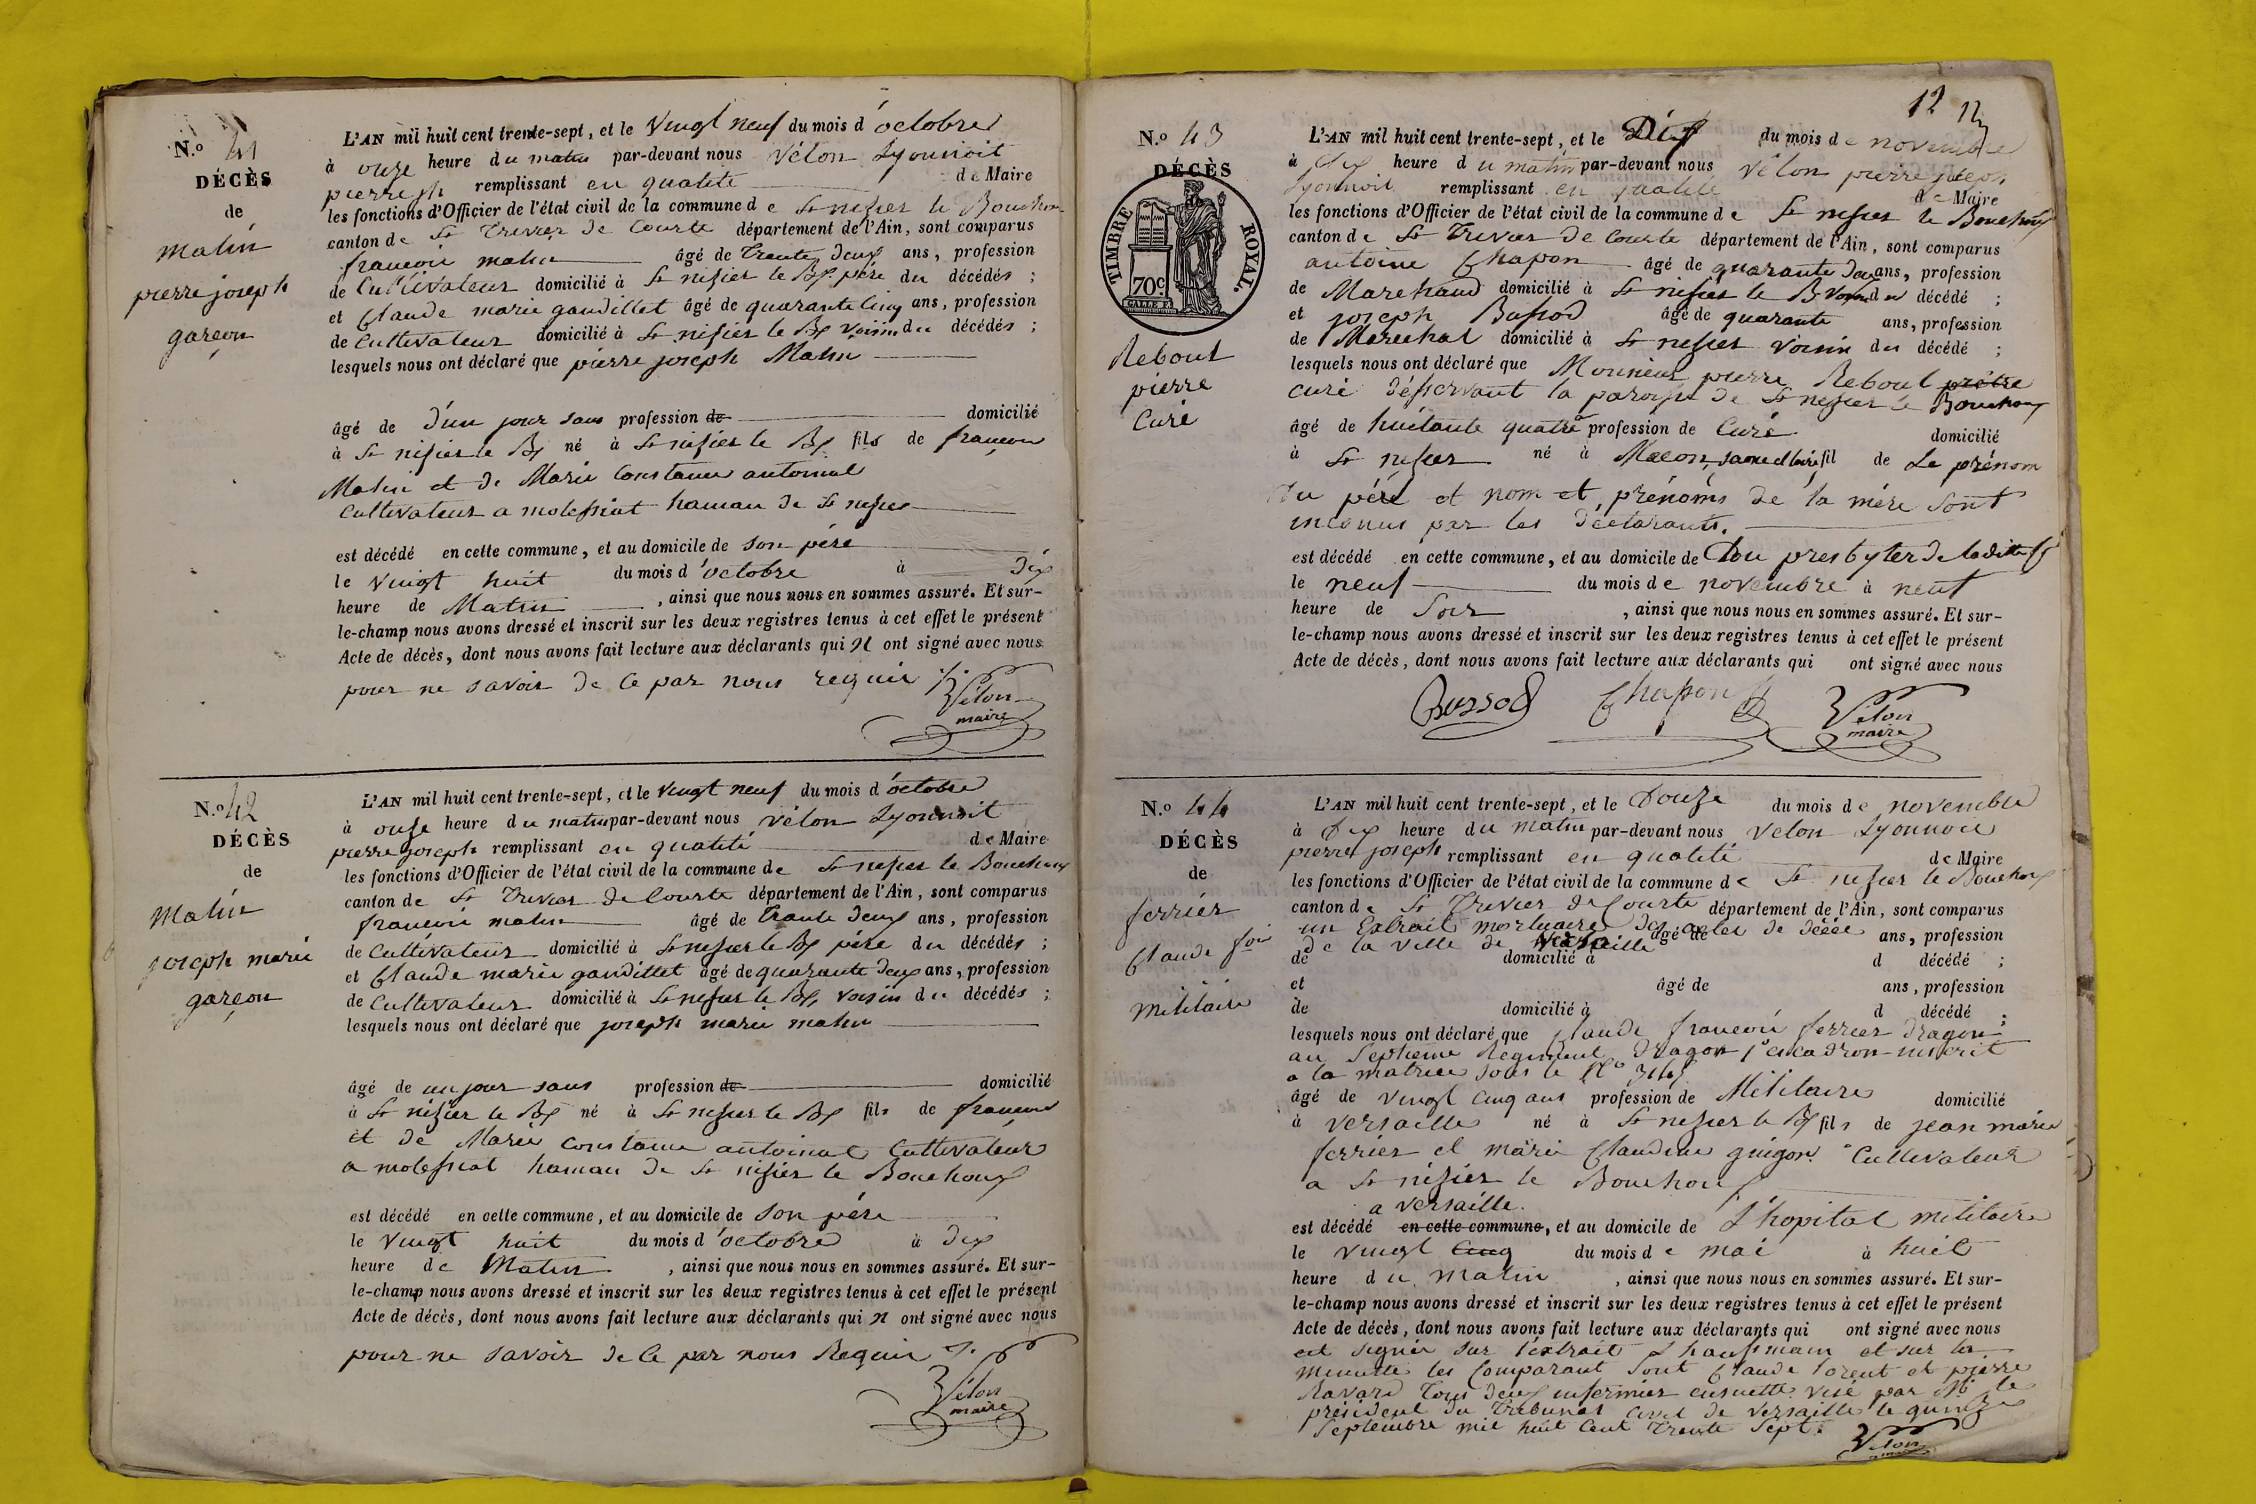 N.o 41
DÉCÈS
de
Matin
pierre joseph
garçon
L'AN mil huit cent trente-sept, et le Vingt neuf du mois d'octobre
à onze heure du matin par-devant nous Vélon Lyonnoit
pierre jph remplissant en qualité de Maire
les fonctions d'Officier de l'état civil de la commune de St nisier le Bouchoux
canton de St Trivier de Courte département de l'Ain, sont comparus
françois matin âgé de trente deux ans, profession
de Cultivateur domicilié à St nisier le Bx père du décédés ;
et Claude marie gaudillet âgé de quarante cinq ans, profession
de Cultivateur domicilié à St nisier le Bx Voisin du décédés ;
lesquels nous ont déclaré que pierre joseph Matin
âgé de d'un jour sans profession de domicilié
à St nisier le Bx né à St nisier le Bx fils de françois
Matin et de Marie Constance antoinat
Cultivateur a molessiat hamau de St nisier
est décédé en cette commune, et au domicile de son père
le vingt huit du mois d'octobre à dix
heure de Matin , ainsi que nous nous en sommes assuré. Et sur-
le-champ nous avons dressé et inscrit sur les deux registres tenus à cet effet le présent
Acte de décès, dont nous avons fait lecture aux déclarants qui n ont signé avec nous
pour ne savoir de ce par nous requis
Vélon
maire
N.o 42
DÉCÈS
de
Matin
joseph marie
garçon
L'AN mil huit cent trente-sept, et le Vingt neuf du mois d'octobre
à onze heure du matin par-devant nous vélon Lyonnoit
pierre joseph remplissant en qualité de Maire
les fonctions d'Officier de l'état civil de la commune de St nisier le Bouchoux
canton de St Trivier de Courte département de l'Ain, sont comparus
françois matin âgé de trante deux ans, profession
de Cultivateur domicilié à St nisier le Bx père du décédés ;
et Claude marie gaudillet âgé de quarante deux ans, profession
de Cultivateur domicilié à St nisier le Bx, voisin du décédés ;
lesquels nous ont déclaré que joseph marie matin
âgé de un jour sans profession de domicilié
à St nisier le Bx né à St nisier le Bx fils de françois
et de Marie constance antoinat Cultivateur
a molessiat hamau de St nisier le Bouchoux
est décédé en cette commune, et au domicile de son père
le vingt huit du mois d'octobre à dix
heure de Matin , ainsi que nous nous en sommes assuré. Et sur-
le-champ nous avons dressé et inscrit sur les deux registres tenus à cet effet le présent
Acte de décès, dont nous avons fait lecture aux déclarants qui n ont signé avec nous
pour ne savoir de ce par nous Requis
Vélon
maire
12
N.o 43
DÉCÈS
TIMBRE ROYAL.
70c
Rebout
pierre
Curé
L'AN mil huit cent trente-sept, et le Dix du mois de novembre
à dix heure du matin par-devant nous vélon pierre joseph
Lyonnoit remplissant en qualité de Maire
les fonctions d'Officier de l'état civil de la commune de St nisier le Bouchoux
canton de St Trivier de Courte département de l'Ain, sont comparus
antoine Chapon âgé de quarante deux ans, profession
de Marchand domicilié à St nisier le B voisin du décédé ;
et joseph Bussod âgé de quarante ans, profession
de Marechal domicilié à St nisier voisin du décédé ;
lesquels nous ont déclaré que Monsieur pierre Rebout prêtre
curé désservant la paroisse de St nisier le Bouchoux
âgé de huitante quatre profession de Curé domicilié
à St nisier né à Macon, saone et loire, fil de Le prénom
du père et nom et prénoms de la mère sont
inconus par les déclarants.
est décédé en cette commune, et au domicile de Dou presbyter de laditte
le neuf du mois de novembre à neuf
heure de Soir , ainsi que nous nous en sommes assuré. Et sur-
le-champ nous avons dressé et inscrit sur les deux registres tenus à cet effet le présent
Acte de décès, dont nous avons fait lecture aux déclarants qui ont signé avec nous
Bussod Chapon Vélon
maire
N.o 44
DÉCÈS
de
ferrier
Claude fois
militaire
L'AN mil huit cent trente-sept, et le Douze du mois de novembre
à Dix heure du matin par-devant nous Vélon Lyonnoit
pierre joseph remplissant en qualité de Maire
les fonctions d'Officier de l'état civil de la commune de St nisier le Bouchoux
canton de St Trivier de Courte département de l'Ain, sont comparus
un Extrait mortuaire des actes de décée âgé de ans, profession
de la ville de Versaille
de domicilié à d décédé ;
et âgé de ans, profession
de domicilié à d décédé ;
lesquels nous ont déclaré que Claude françois ferrier dragon
au Septieme Regiment Dragon 1er escadron inscrit
a la matrice sous le No
âgé de vingt cinq ans profession de Militaire domicilié
à Versaille né à St nisier le Bx fils de jean marie
ferrier et marie Claudine guigon Cultivateur
a St nisier le Bouchoux
a versaille.
est décédé en cette commune, et au domicile de L'hopital militaire
le vingt cinq du mois de mai à huit
heure du matin , ainsi que nous nous en sommes assuré. Et sur-
le-champ nous avons dressé et inscrit sur les deux registres tenus à cet effet le présent
Acte de décès, dont nous avons fait lecture aux déclarants qui ont signé avec nous
est signée sur l'extrait et sur la
minutte les Comparant sont Claude lorent et pierre
Ravard tous deux infermier visé par Mr le
président du Tribunal civil de Versaille le quinze
Septembre mil huit Cent Trente Sept.
Vélon